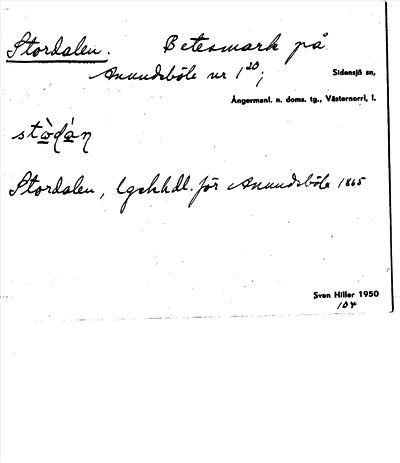 Stordalen. Betesmark på
Anundsböle nr 1²⁰;
Sidensjö sn,
Ångermanl. n. doms. tg., Västernorrl, l.
Stordalen, lgskhdl. för Anundsböle 1865
Sven Hiller 1950
104